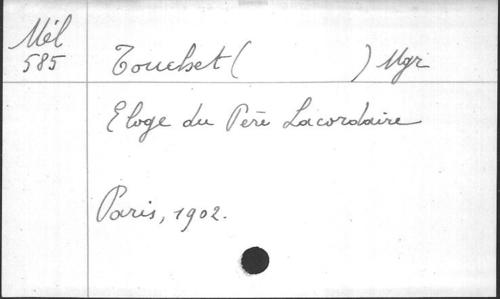 Mél
585
Touchet ( ) Mgr
Eloge du Père Lacordaire
Paris, 1902.